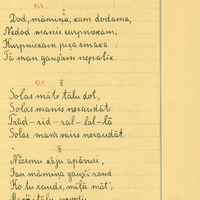 I
Dod, māmiņa, kam dodama,
Nedod manis kurpniekam,
Kurpniekam piķa smaka
Tā man gaužam nepatīk.
II
Solās māte tālu dot,
Solās manis neraudāt.
Trād-rid-ral-lal-lā
Solās mans vairs neraudāt.
III
Neesmu kāju apāvusi,
Jau māmiņa gauži raud
Ko tu raudi, mīļā māt',